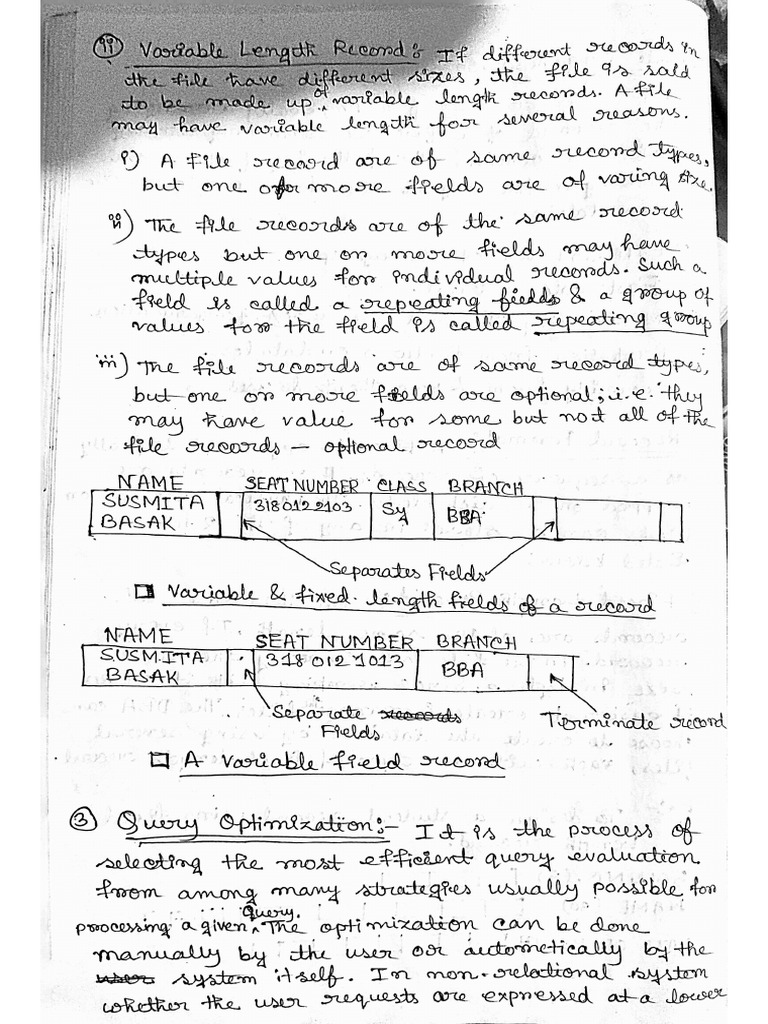 ii) Variable Length Record: If different records in
the file have different sizes, the file is said
to be made up of variable length records. A file
may have variable length for several reasons.
i) A file record are of same record types,
but one or more fields are of varing size.
ii) The file records are of the same record
types but one or more fields may have
multiple values for individual records. Such a
field is called a repeating fields & a group of
values for the field is called repeating group
iii) The file records are of same record types,
but one or more fields are optional; i.e. they
may have value for some but not all of the
file records — optional record
NAME SEAT NUMBER CLASS BRANCH
SUSMITA BASAK 3180122103 Sy BBA
Separates Fields
Variable & fixed length fields of a record
NAME SEAT NUMBER BRANCH
SUSMITA BASAK 3180121013 BBA
Separate records Terminate record
Fields
A variable field record
③ Query Optimization:- It is the process of
selecting the most efficient query evaluation
from among many strategies usually possible for
processing a given Query. The optimization can be done
manually by the user or autometically by the
user system itself. In non-relational system
whether the user requests are expressed at a lower